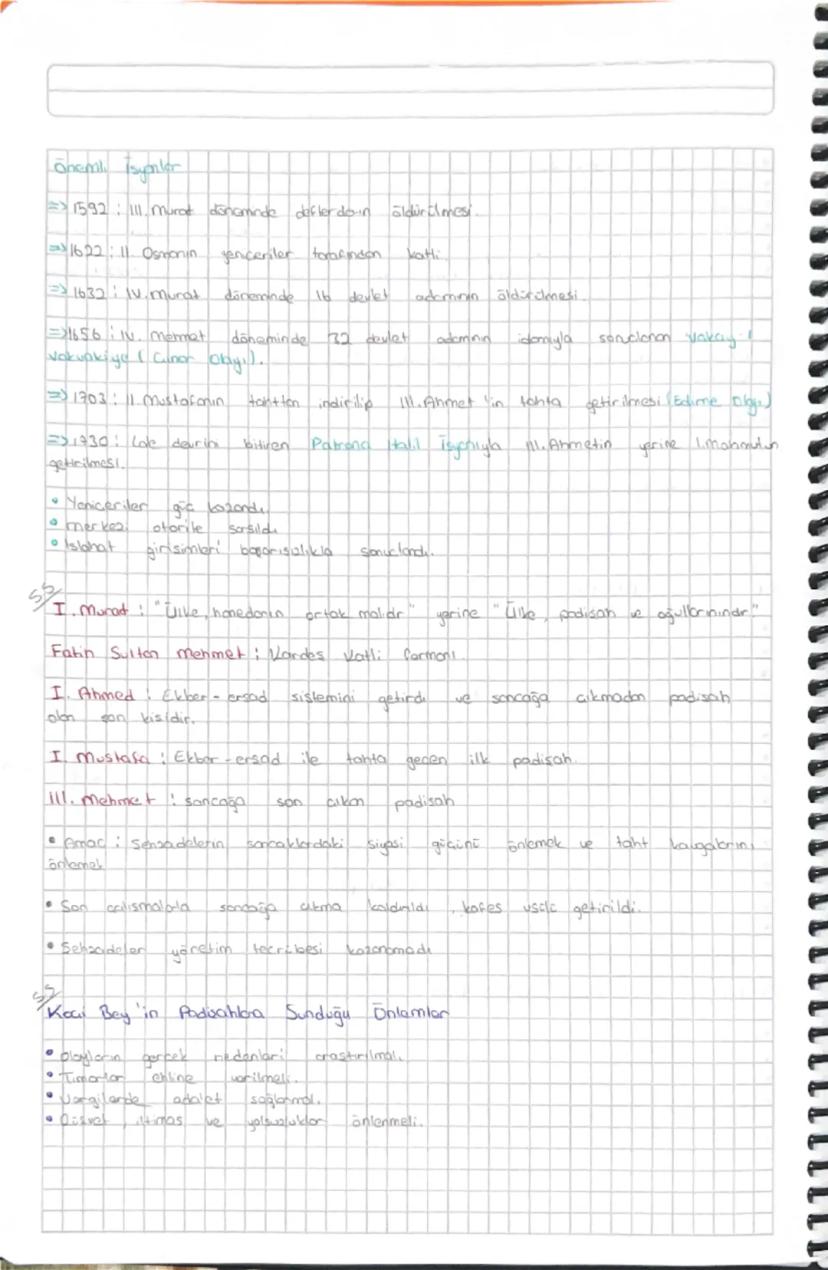 Önemli İsyanlar
=> 1592 : III. Murat döneminde defterdarın öldürülmesi.
=> 1622 : II. Osmanın yenceriler tarafından katli.
=> 1632 : IV. Murat döneminde 16 devlet adamının öldürülmesi.
=> 1656 : IV. Mehmet döneminde 32 devlet adamının idamıyla sonuclanan Vakay-ı
Vakvakiye ( Cınar Olayı ).
=> 1703 : II. Mustafanın tahttan indirilip III. Ahmet 'in tahta getirilmesi (Edirne Olayı)
=> 1730 : Lale devrini bitiren Patrona Halil İsyanıyla III. Ahmetin yerine I. Mahmutun
getirilmesi.
• Yeniceriler güc kazandı.
• merkezi otorite sarsıldı
• Islahat girişimleri başarısızlıkla sonuclandı.
SS
I. Murat : "Ülke, hanedanın ortak malıdır" yerine "Ülke, padişah ve oğullarınındır"
Fatih Sultan Mehmet : Kardes katli fermanı.
I. Ahmed : Ekber - erşad sistemini getirdi ve sancağa cıkmadan padisah
olan son kisidir.
I. Mustafa : Ekber - erşad ile tahta gecen ilk padişah.
III. Mehmet : sancağa son cıkan padisah
• Amac : Şehzadelerin sancaklardaki siyasi gücünü önlemek ve taht kavgalarını
önlemek
• Son calısmalarla sancağa cıkma kaldırıldı , kafes usulü getirildi.
• Şehzadeler yönetim tecrübesi kazanamadı
SS
Koci Bey 'in Padisahlara Sunduğu Önlemler
• Olayların gercek nedenleri araştırılmalı.
• Tımarlar ehline verilmeli.
• Vergilerde adalet sağlanmalı.
• Rüşvet , iltimas ve yolsuzluklar önlenmeli.